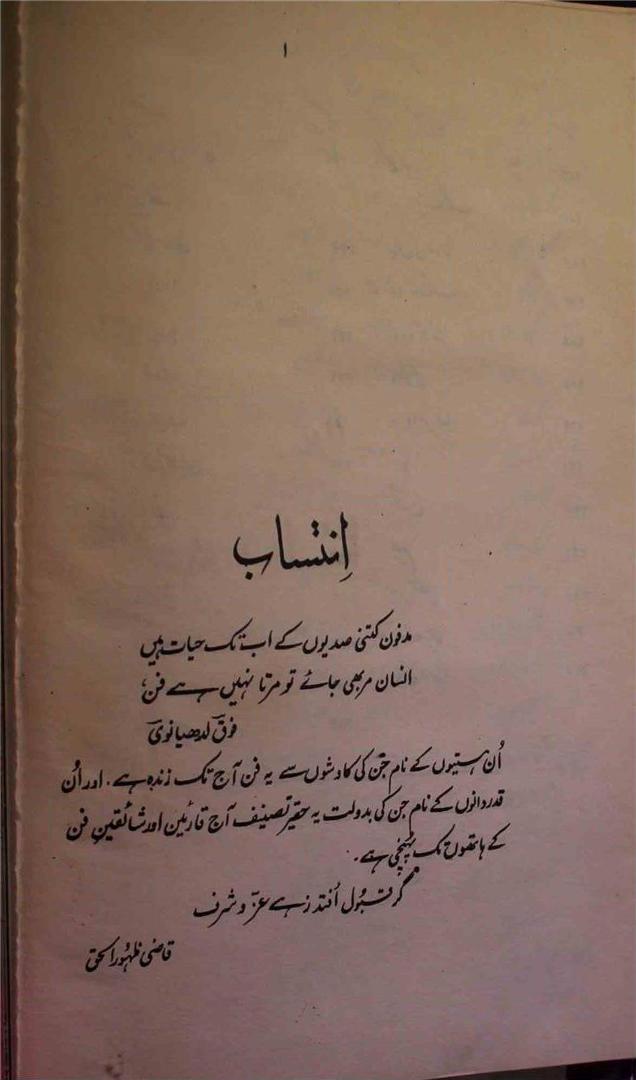 ۱
اِنتساب
مدفون کتنی صدیوں کے اب تک حیات ہیں
انسان مر بھی جائے تو مرتا نہیں ہے فن،
فوقؔ لدھیانویؔ
اُن ہستیوں کے نام جن کی کاوشوں سے یہ فن آج تک زندہ ہے. اور اُن
قدر دانوں کے نام جن کی بدولت یہ حقیر تصنیف آج قارئین اور شائقینِ فن
کے ہاتھوں تک پہنچی ہے.
گر قبول اُفتد زہے عز و شرف
قاضی ظہورُ الحق